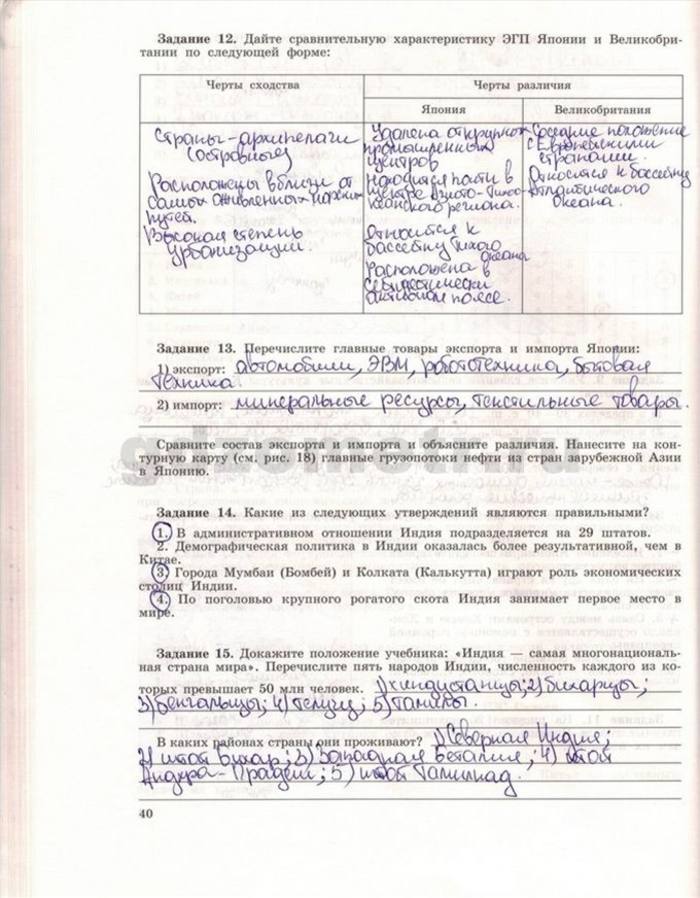 Задание 12. Дайте сравнительную характеристику ЭГП Японии и Великобри-
тании по следующей форме:
Черты сходства
Черты различия
Япония
Великобритания
Страны-архипелаги
(островные)
Расположены вблизи от
самых оживленных морских
путей.
Высокая степень
урбанизации.
Удалена от крупных
промышленных
центров
Находится почти в
центре Азиато-Тихо-
океанского региона.
Относится к
бассейну Тихого
океана
Расположена в
сейсмически
активном поясе.
Соседние положение
с Европейскими
странами.
Относится к бассейну
Атлантического
океана.
Задание 13. Перечислите главные товары экспорта и импорта Японии:
1) экспорт: автомобили, ЭВМ, робототехника, бытовая
техника.
2) импорт: минеральные ресурсы, текстильные товары.
Сравните состав экспорта и импорта и объясните различия. Нанесите на кон-
турную карту (см. рис. 18) главные грузопотоки нефти из стран зарубежной Азии
в Японию.
Задание 14. Какие из следующих утверждений являются правильными?
1. В административном отношении Индия подразделяется на 29 штатов.
2. Демографическая политика в Индии оказалась более результативной, чем в
Китае.
3. Города Мумбаи (Бомбей) и Колката (Калькутта) играют роль экономических
столиц Индии.
4. По поголовью крупного рогатого скота Индия занимает первое место в
мире.
Задание 15. Докажите положение учебника: «Индия — самая многонациональ-
ная страна мира». Перечислите пять народов Индии, численность каждого из ко-
торых превышает 50 млн человек. 1) хиндустанцы; 2) бихарцы;
3) бенгальцы; 4) телугу; 5) тамилы.
В каких районах страны они проживают? 1) Северная Индия;
2) штат Бихар; 3) Западная Бенгалия; 4) штат
Андхра-Прадеш; 5) штат Тамилнад.
40